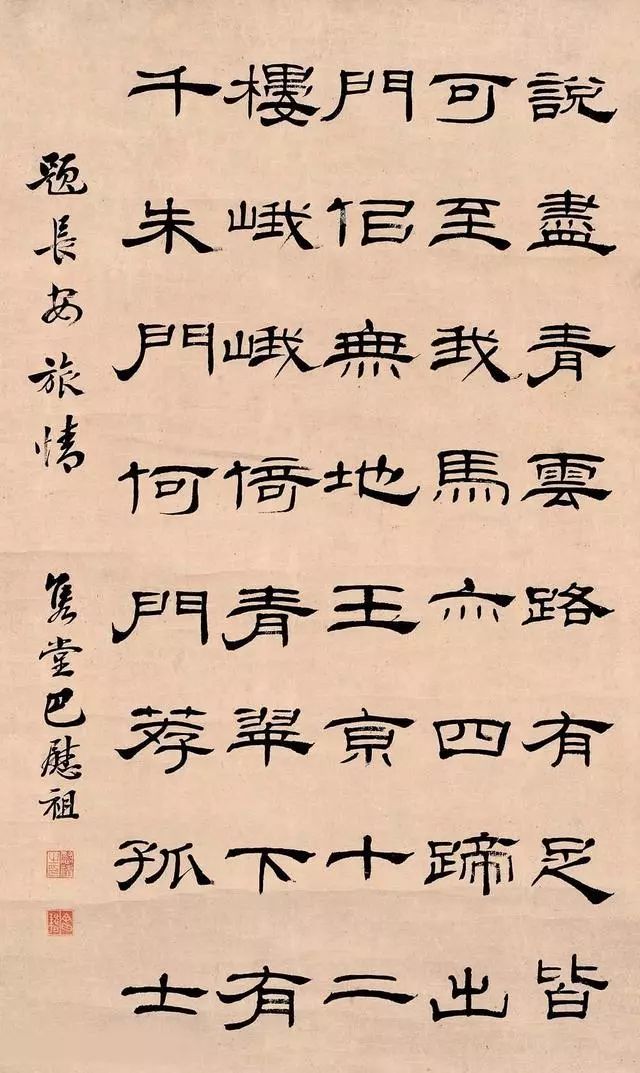 說盡青雲路有足皆
可至我馬亦四蹄出
門似無地玉京十二
樓峨峨倚青翠下有
千朱門何門荐孤士
題長安旅情 雋堂巴慰祖